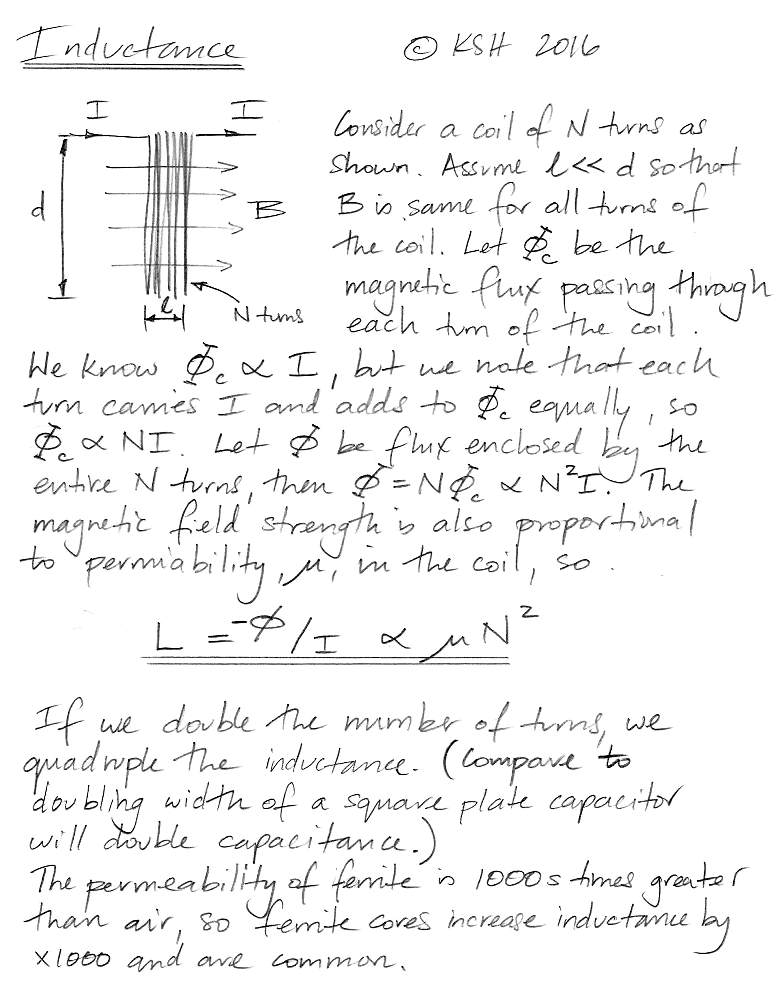 Inductance © KSH 2016
I I
d
B
l
N turns
Consider a coil of N turns as
shown. Assume l << d so that
B is same for all turns of
the coil. Let Φc be the
magnetic flux passing through
each turn of the coil.
We know Φc ∝ I, but we note that each
turn carries I and adds to Φc equally, so
Φc ∝ NI. Let Φ be flux enclosed by the
entire N turns, then Φ = NΦc ∝ N²I. The
magnetic field strength is also proportional
to permiability, μ, in the coil, so.
L = -Φ/I ∝ μN²
If we double the number of turns, we
quadruple the inductance. (Compare to
doubling width of a square plate capacitor
will double capacitance.)
The permeability of ferrite is 1000s times greater
than air, so ferrite cores increase inductance by
×1000 and are common.